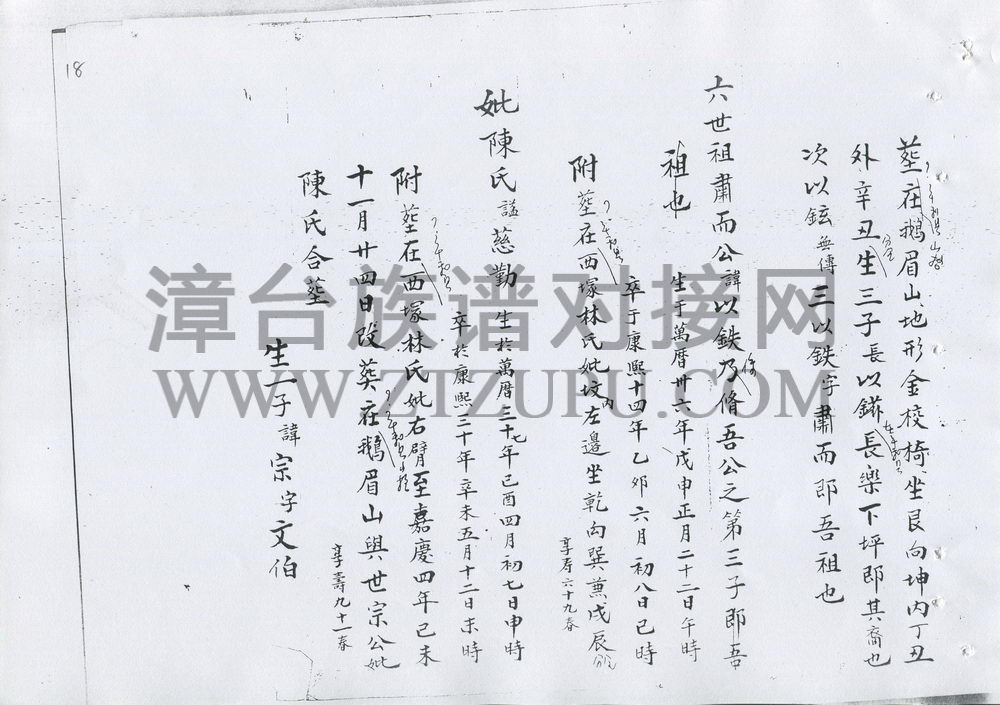 18
塟在鵝眉山地形金校椅坐艮向坤內丁丑
外辛丑生三子長以鎡長樂下坪即其裔也
次以鉉無傳三以鉄字肅而即吾祖也
六世祖肅而公諱以鉄乃脩吾公之第三子即吾
祖也 生于萬曆卅六年戊申正月二十二日午時
卒于康熙十四年乙卯六月初八日巳時
附塟在西塚林氏妣坟內左邊坐乾向巽兼戌辰
享寿六十九春
妣陳氏諡慈勤生於萬曆三十七年己酉四月初七日申時
卒於康熙三十年辛未五月十二日未時
附塟在西塚林氏妣右臂至嘉慶四年己未
十一月廿四日改葬在鵝眉山與世宗公妣
享壽九十一春
陳氏合塟
生一子諱宗字文伯
漳台族谱对接网
WWW.ZTZUPU.COM